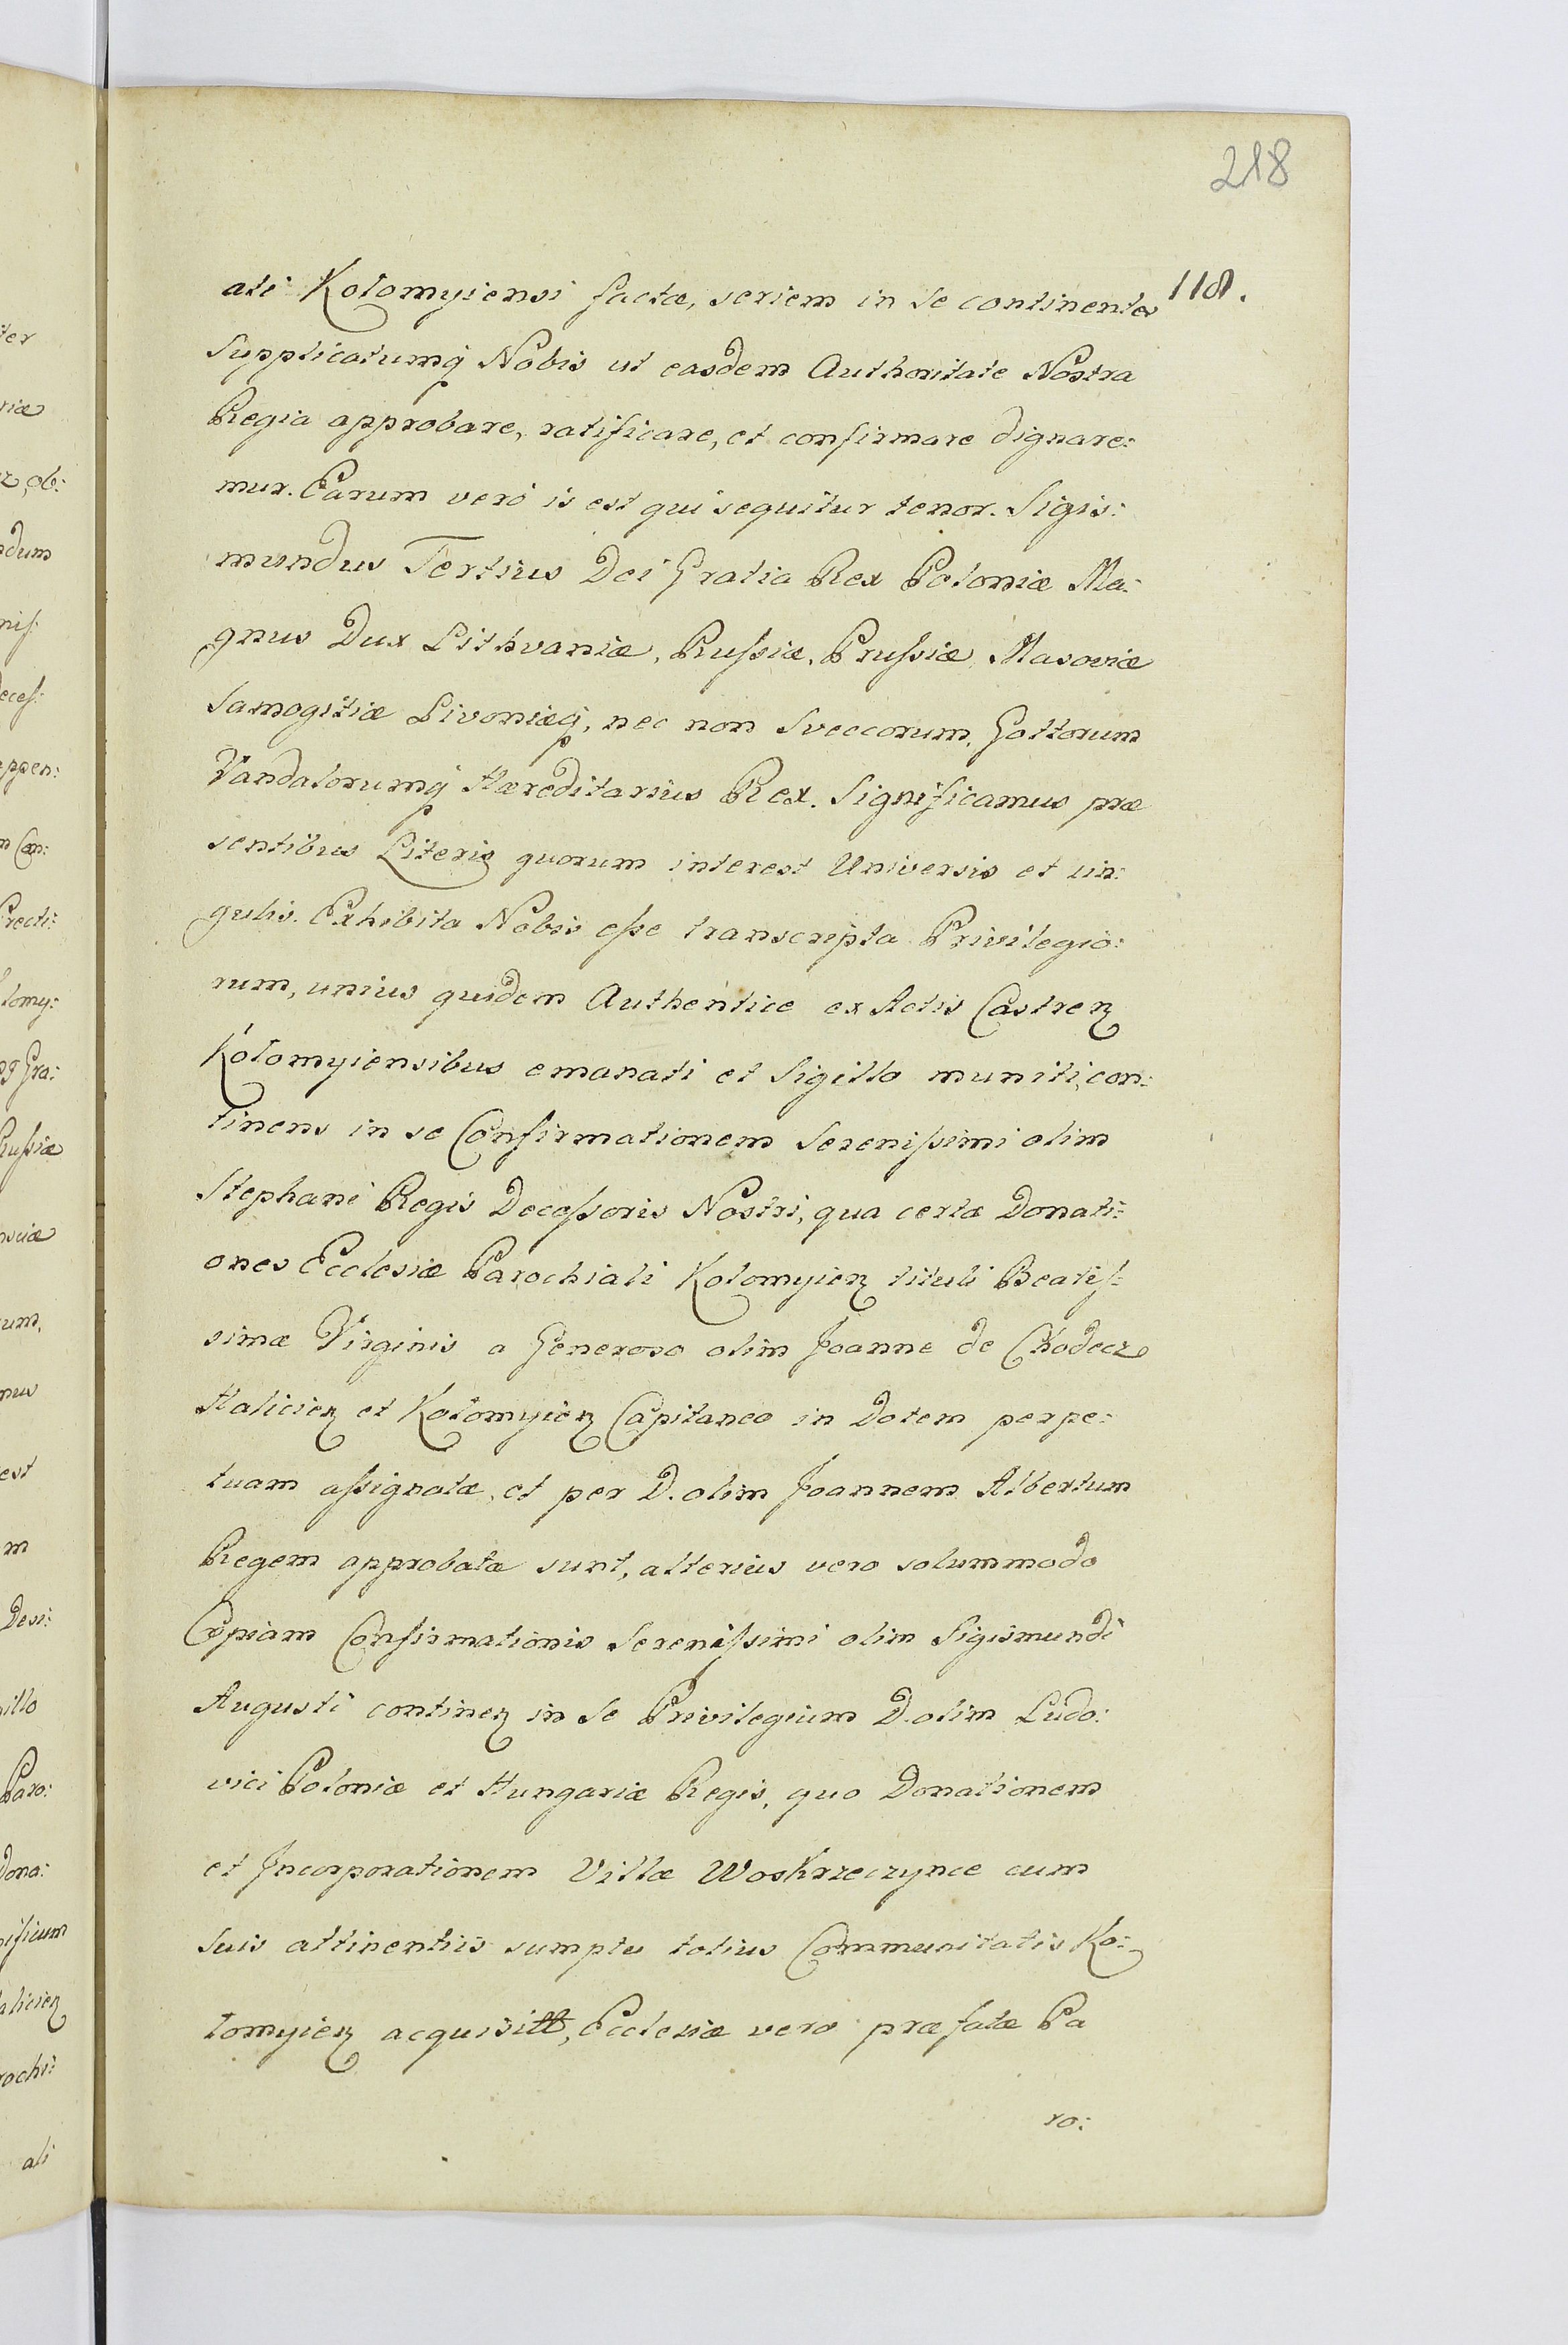 218
118.
ali Kolomyiensi factæ, seriem in se continentes
Supplicatumq Nobis ut easdem Authoritate Nostra
Regia approbare, ratificare, et confirmare dignare:
mur. Earum verò is est qui sequitur tenor. Sigis:
mundus Tertius Dei Gratia Rex Poloniæ Ma:
gnus Dux Lithvaniæ, Rußiæ, Prußiæ Masoviæ
Samogitiæ Livoniæq, nec non Sveccorum, Gottorum
Vandalorumq Hæreditarius Rex. Significamus præ
sentibus Literis quorum interest Universis et sin:
gulis. Exhibita Nobis eße transcripta Privilegio:
rum, unius quidem Authentice ex Actis Castren
Kolomyiensibus emanati et Sigillo muniti, con:
tinens in se Confirmationem Serenißimi olim
Stephani Regis Deceßoris Nostri, qua certæ Donati:
ones Ecclesiæ Parochiali Kolomyien tituli Beatis:
simæ Virginis a Generoso olim Joanne de Chodecz
Halicien et Kolomyien Capitaneo in Dotem perpe:
tuam aßignatæ, et per D. olim Joannem Albertum
Regem approbatæ sunt, alterius vero solummodo
Copiam Confirmationis Serenißimi olim Sigismundi
Augusti continen in se Privilegium D. olim Ludo:
vici Poloniæ et Hungariæ Regis, quo Donationem
et Incorporationem Villæ Woskrzeczynce cum
suis attinentiis sumptu totius Communitatis Ko:
lomyien acquisitt, Ecclesiæ vero præfatæ Pa
ro: